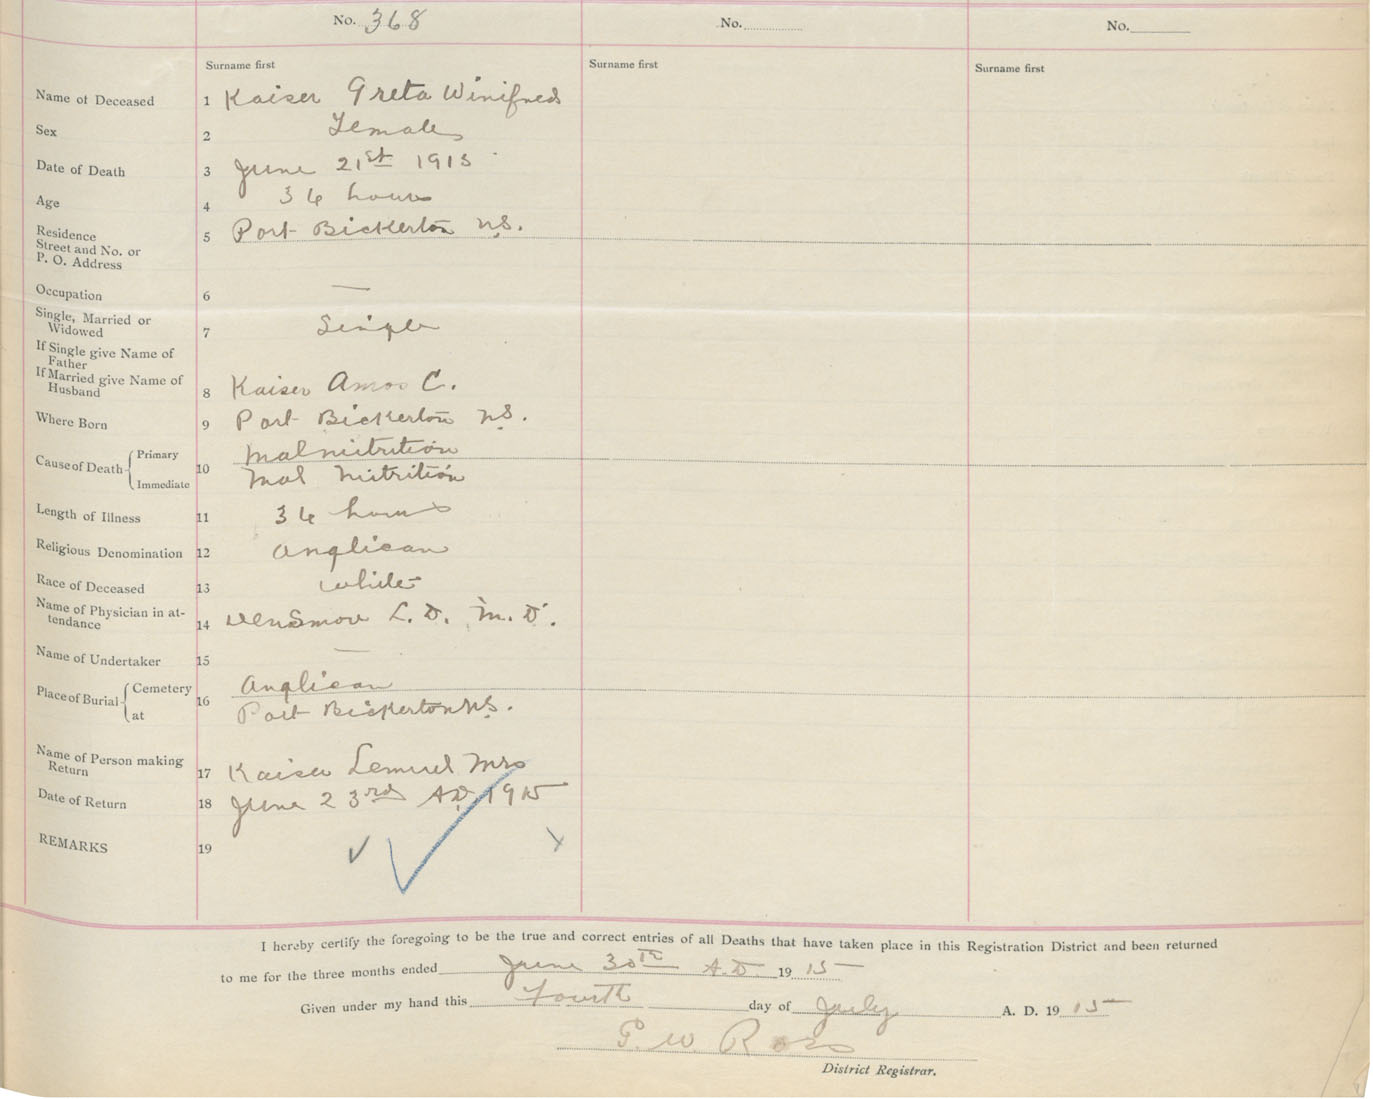 No. 368 No. No.
Surname first Surname first Surname first
Name of Deceased 1 Kaiser Greta Winifred
Sex 2 Female
Date of Death 3 June 21st 1915
Age 4 36 hours
Residence
Street and No. or
P. O. Address 5 Port Bickerton N.S.
Occupation 6 —
Single, Married or
Widowed 7 Single
If Single give Name of
Father
If Married give Name of
Husband 8 Kaiser Amos C.
Where Born 9 Port Bickerton N.S.
Cause of Death { Primary 10 Malnutrition
Immediate Mal Nutrition
Length of Illness 11 36 hours
Religious Denomination 12 Anglican
Race of Deceased 13 White
Name of Physician in at-
tendance 14 Densmore L. D. M. D.
Name of Undertaker 15 —
Place of Burial { Cemetery 16 Anglican
at Port Bickerton N.S.
Name of Person making
Return 17 Kaiser Lemuel Mrs
Date of Return 18 June 23rd A.D. 1915
REMARKS 19
I hereby certify the foregoing to be the true and correct entries of all Deaths that have taken place in this Registration District and been returned
to me for the three months ended June 30th A.D. 1915
Given under my hand this Fourth day of July A. D. 1915
W. Ross
District Registrar.